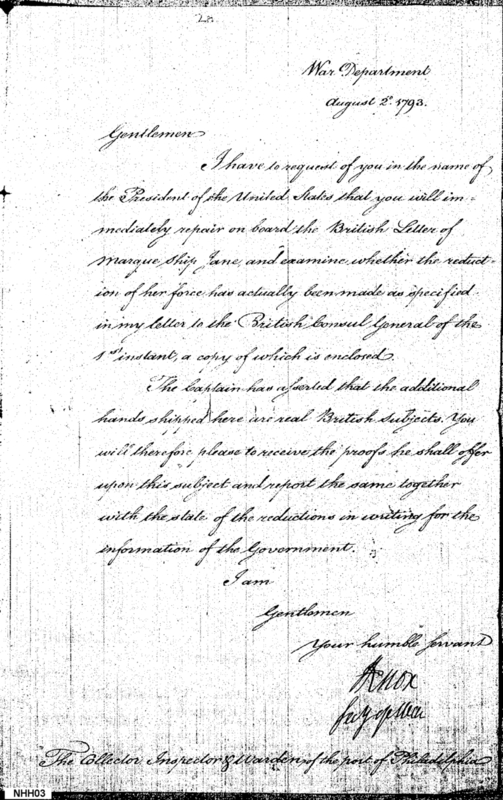 28
War Department
August 2d. 1793.
Gentlemen
I have to request of you in the name of
the President of the United States that you will im-
mediately repair on board the British Letter of
Marque Ship Jane, and examine, whether the reduct-
ion of her force has actually been made as specified
in my letter to the British Consul General of the
1st instant, a copy of which is enclosed.
The Captain has asserted that the additional
hands shipped here are real British subjects. You
will therefore please to receive the proofs he shall offer
upon this subject and report the same together
with the state of the reductions in writing for the
information of the Government.
I am
Gentlemen
Your humble Servant
HKnox
Secy of War
The Collector Inspector & Wardens of the port of Philadelphia
NHH03